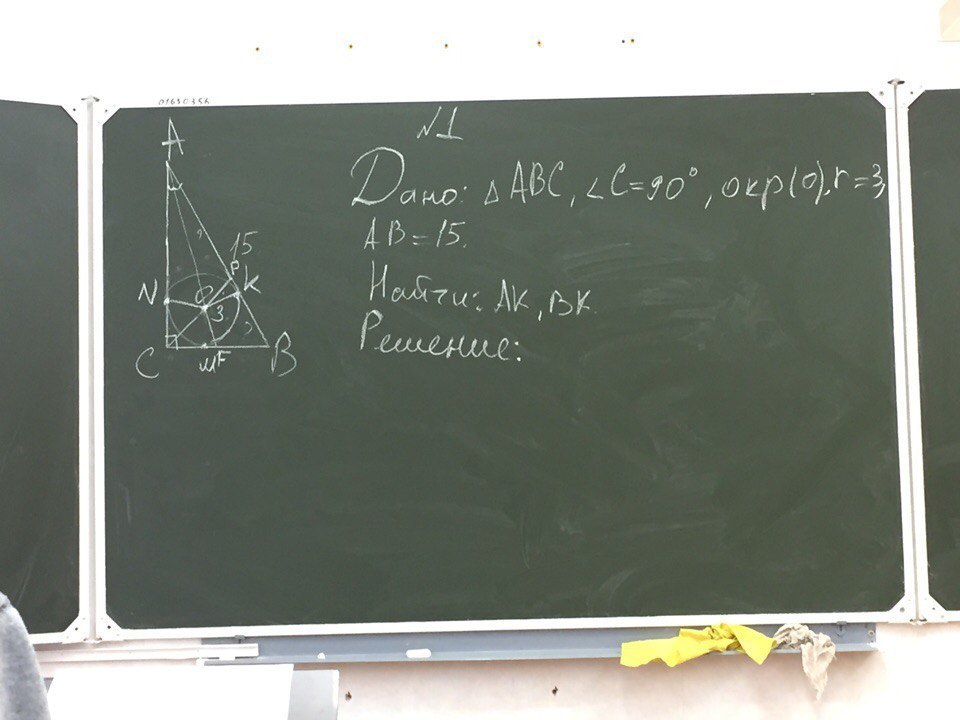 01630356
N1
Дано: △ABC, ∠C=90°, окр(O), r=3,
AB=15.
Найти: AK, BK.
Решение:
A
15
P
N
K
O
3
C
M F
B